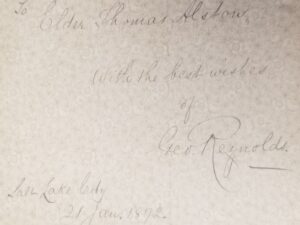 To Elder Thomas Alston,
With the best wishes
of
Geo Reynolds.
Salt Lake City
21 Jan. 1892.